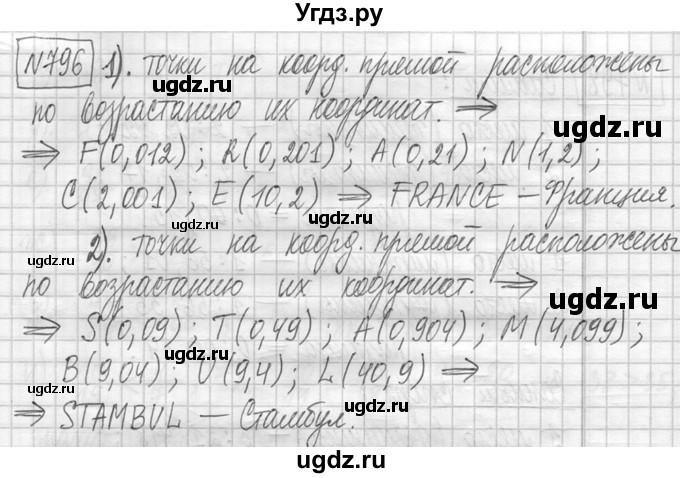 Угдз.ру
№796 1). точки на коорд. прямой расположены
по возрастанию их координат. ⇒
⇒ F(0,012); R(0,201); A(0,21); N(1,2);
C(2,001); E(10,2) ⇒ FRANCE – Франция.
2). точки на коорд. прямой расположены
по возрастанию их координат. ⇒
⇒ S(0,09); T(0,49); A(0,904); M(4,099);
B(9,04); U(9,4); L(40,9) ⇒
⇒ STAMBUL – Стамбул.
ugdz.ru
ugdz.ru
ugdz.ru
ugdz.ru
ugdz.ru
ugdz.ru
ugdz.ru
ugdz.ru
ugdz.ru
ugdz.ru
ugdz.ru